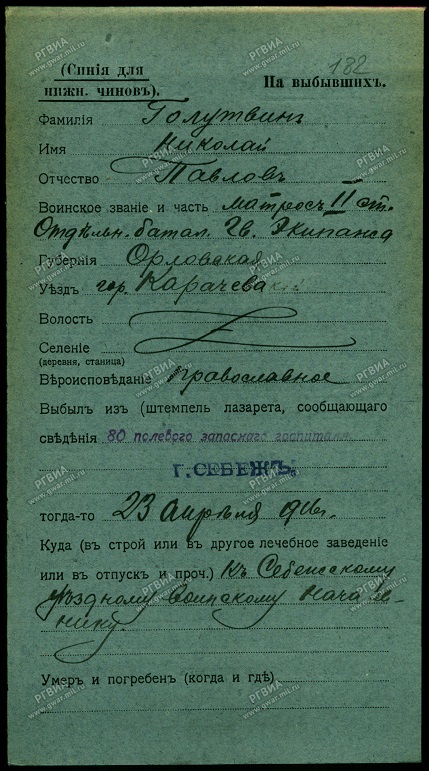 182
(Синія для
нижн. чиновъ).
На выбывшихъ.
Фамилія Голутвинъ
Имя Николай
Отчество Павловъ
Воинское званіе и часть матросъ II ст.
Отдѣльн. батал. Гв. Экипажа
Губернія Орловская
Уѣздъ гор. Карачева
Волость
Селеніе
(деревня, станица)
Вѣроисповѣданіе Православное
Выбылъ изъ (штемпель лазарета, сообщающаго
свѣдѣнія 80 полевого запаснаго госпиталя
Г. СЕБЕЖЪ.
тогда-то 23 апрѣля 916г.
Куда (въ строй или въ другое лечебное заведеніе
или въ отпускъ и проч.) Къ Себежскому
уѣздному Воинскому Нача
нику.
Умеръ и погребенъ (когда и гдѣ)
РГВИА
www.gwar.mil.ru